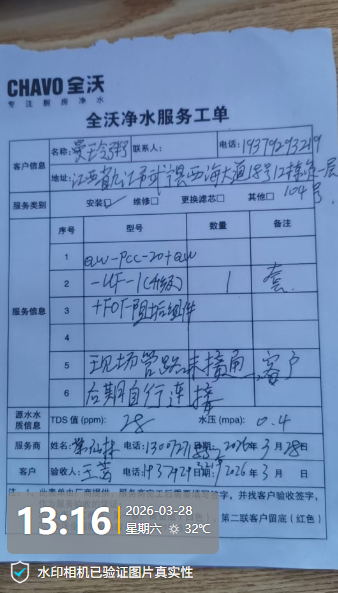 CHAVO 全沃
专注厨房净水
全沃净水服务工单
客户信息
名称: 联系人: 电话: 19379293219
地址: 江西省九江市武宁县西海大道18号12栋一层
104号
服务类别 安装☑ 维修□ 更换滤芯□ 其他□
服务信息
序号 型号 数量 备注
1 QW-PCC-20+QW
2 -UF-1(升级) 1 套
3 +FOF阻垢组件
4
5 现场管路未接通,客户
6 后期自行连接
源水水质信息 TDS 值 (ppm): 28 水压 (mpa): 0.4
服务商 姓名: 电话: 日期: 2026年3月28日
客户 验收人: 电话: 日期: 2026年3月 日
13:16
2026-03-28
星期六 32℃
第二联客户留底(红色)
水印相机已验证图片真实性